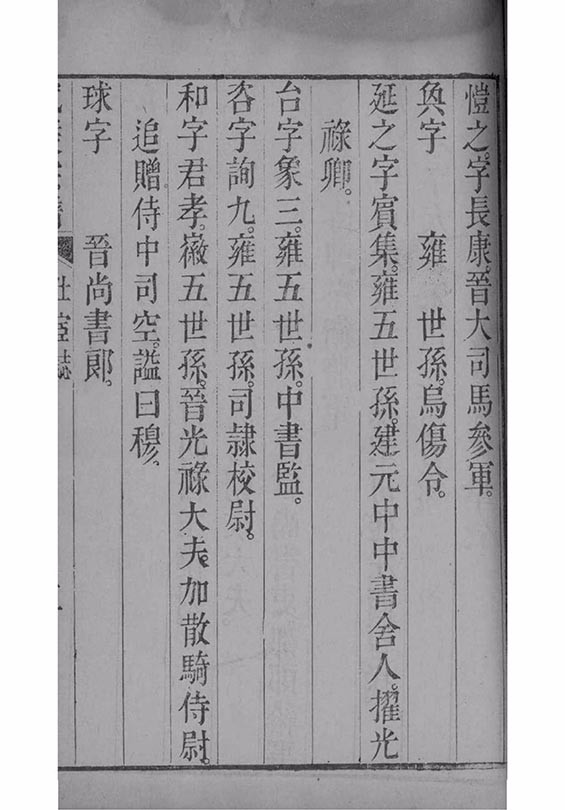 愷之。字長康。晉大司馬參軍。
奐字　雍　世孫。烏傷令。
延之字賓集。雍五世孫。建元中中書舍人。擢光
祿卿。
台字象三。雍五世孫。中書監。
咨字詢九。雍五世孫。司隸校尉。
和字君孝。徽五世孫。晉光祿大夫。加散騎侍尉。
追贈侍中司空。謚曰穆。
球字　　晉尚書郎。